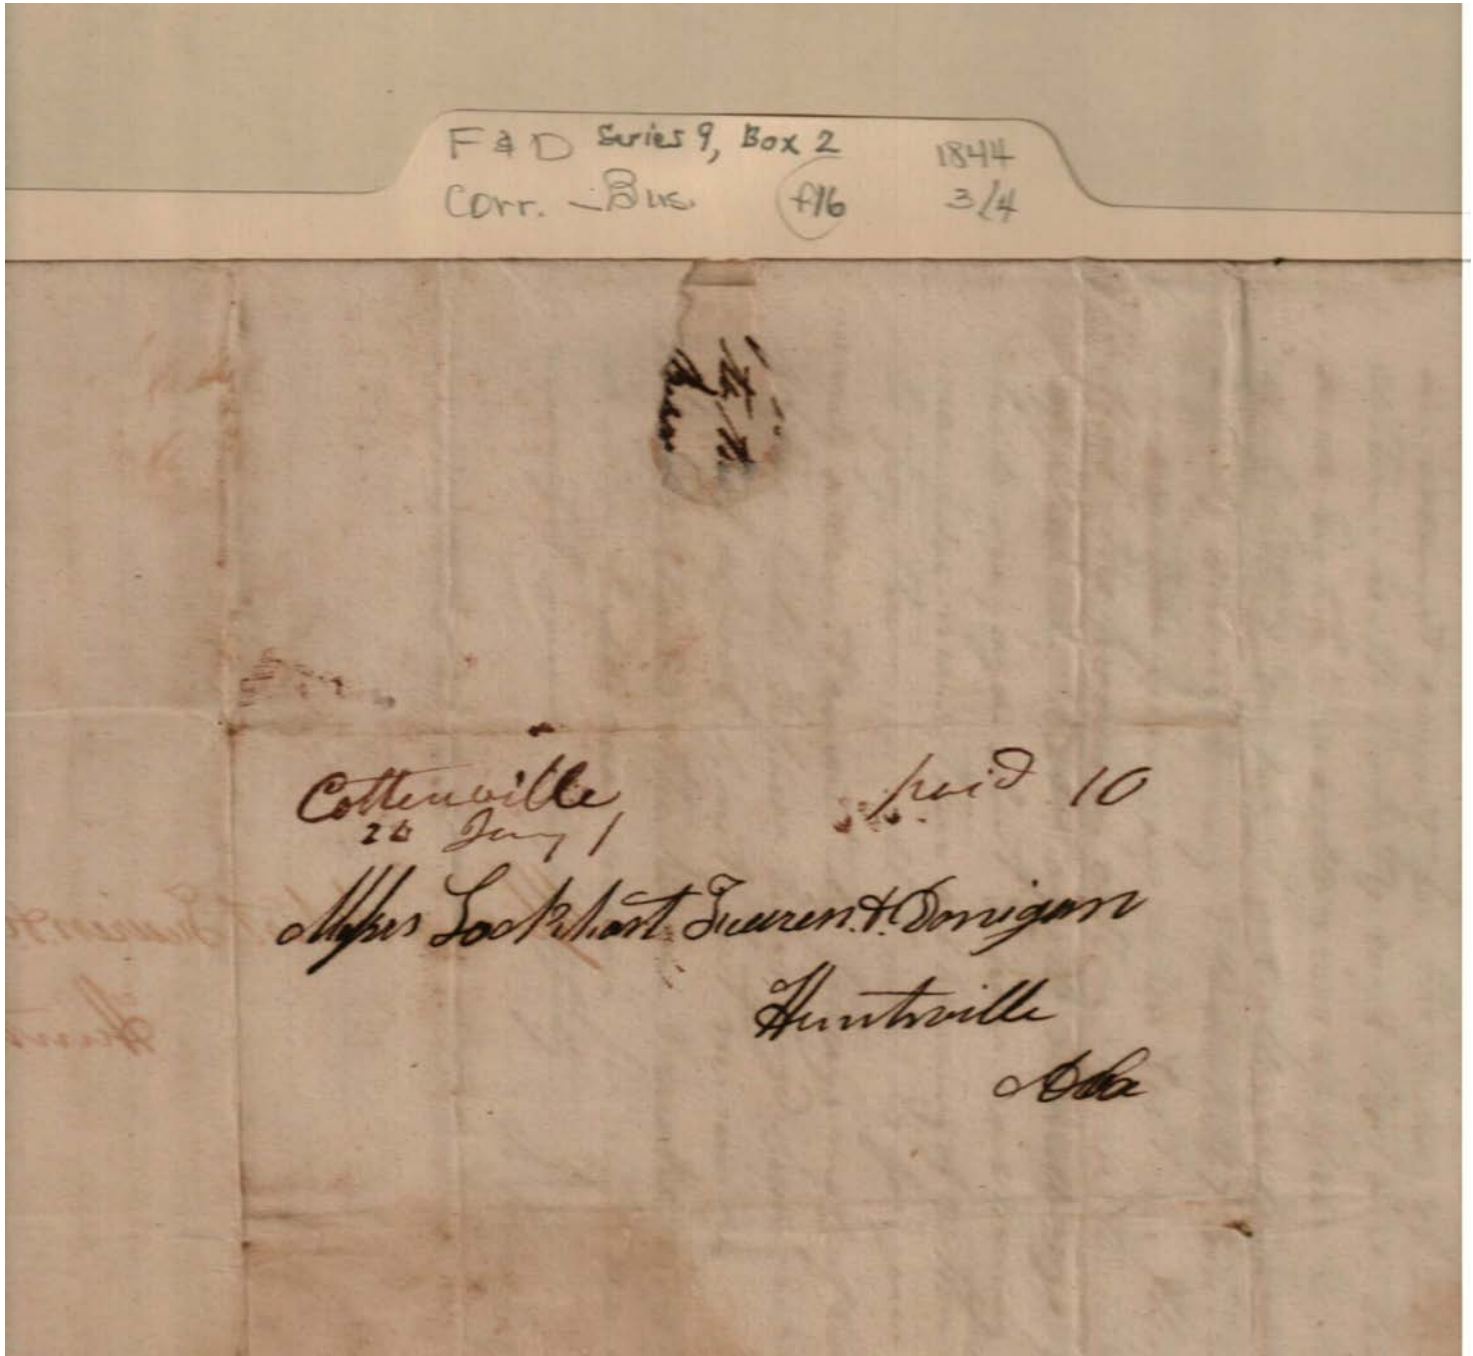 F & D Series 9, Box 2 1844
Corr. - Bus. f16 3/4
Cottenville paid 10
26 Jany
Messrs Lockhart Fearen & Donigan
Huntsville
Ala